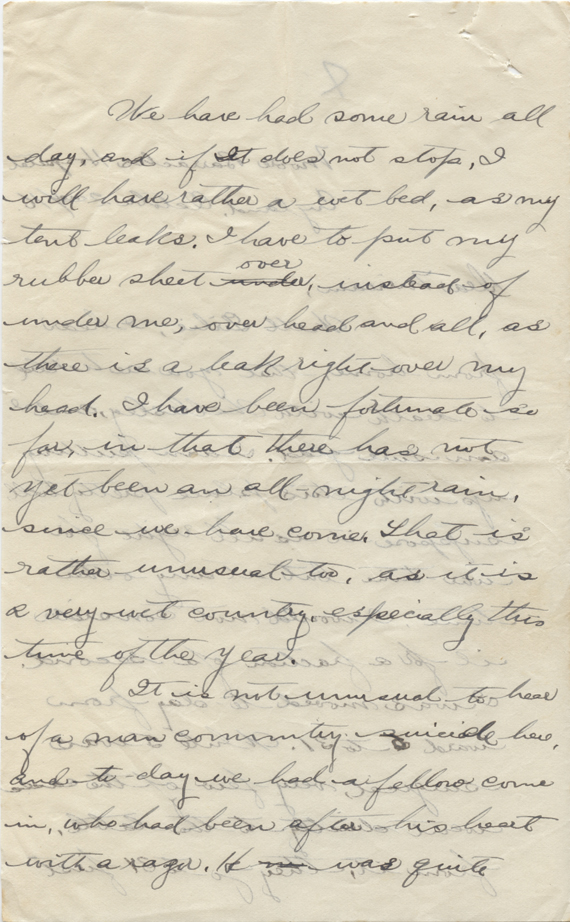 We have had some rain all
day, and if it does not stop, I
will have rather a wet bed, as my
tent leaks. I have to put my
rubber sheet under over, instead of
under me, over head and all, as
there is a leak right over my
head. I have been fortunate so
far, in that there has not
yet been an all-night rain,
since we have come. That is
rather unusual too, as it is
a very wet country, especially this
time of the year.
It is not unusual to hear
of a man community suicide here,
and to-day we had a fellow come
in, who had been after his heart
with a razor. He was quite